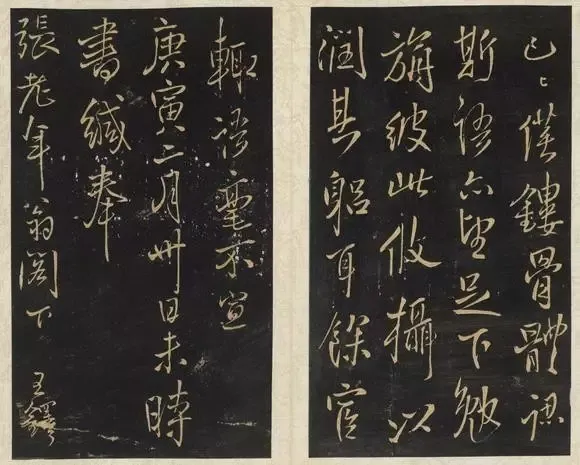 已〻僕鏤骨體認
斯語亦望足下勉
旃彼此攸攝以
潤其躬耳餘
輒語毫不宣
庚寅二月卅日未時
書緘奉
張老年翁閣下
王鐸